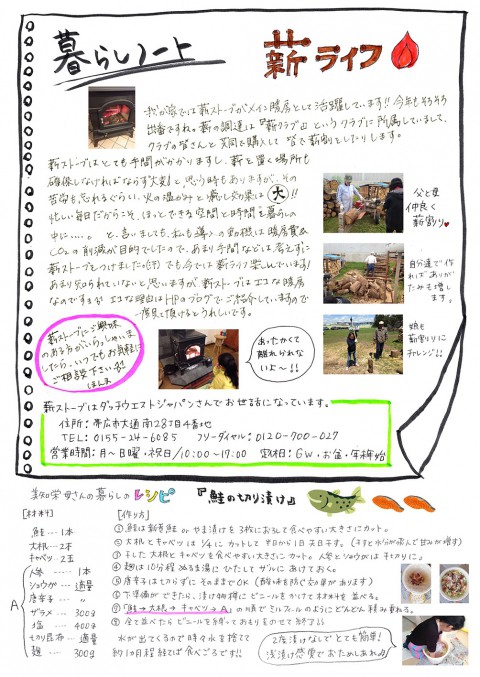 暮らしノート
薪ライフ
我が家では薪ストーブがメイン暖房として活躍しています!!今年もそろそろ
出番ですね。薪の調達は『薪クラブ』というクラブに所属していまして、
クラブの皆さんと共同を購入して皆で薪割をしたりします。
薪ストーブはとても手間がかかりますし、薪を置く場所も
確保しなければならず大変!と思う時もありますが、その
苦労も忘れるぐらい、火の温かみと癒し効果は大!!
忙しい毎日だからこそ、ほっとできる空間と時間を暮らしの
中に・・・。と、言いましても、私も導入の動機は暖房費&
CO2の削減が目的でしたので、あまり手間などは考えずに
薪ストーブをつけました。(汗)でも今では薪ライフ楽しんでいます!
あまり知られていないと思いますが、薪ストーブはエコな暖房
なのですョ!エコな理由はHPのブログでご紹介していますので
一度見て頂けるとうれしいです。
父と母
仲良く
薪割り
自分達で作
ればありが
たみも増し
ます。
娘も
薪割りに
チャレンジ!!
薪ストーブにご興味
のある方がいらっしゃいま
したら、いつでもお気軽に
ご相談下さいネ!!
ほんま
あったかくて
離れられな
いよ〜!!
薪ストーブはダッチウエストジャパンさんでお世話になっています。
住所:帯広市大通南28丁目4番地
TEL:0155-24-6085 フリーダイヤル:0120-700-027
営業時間:月〜日曜・祝日/10:00〜17:00 定休:GW・お盆・年末年始
美知栄母さんの暮らしのレシピ 『鮭の切り漬け』
[材料]
鮭…1本
大根…2本
キャベツ…2玉
A
人参……1本
ショウガ…適量
唐辛子…〃
ザラメ…300g
塩……400g
切り昆布…適量
麹……300g
[作り方]
①鮭は新巻鮭orやま漬けを3枚におろして食べやすい大きさにカット。
②大根とキャベツは1/4にカットして半日から1日天日干す。(干すと水分が飛んで甘みが増す)
③干した大根とキャベツを食べやすい大きさにカット。人参とショウガは千切りに♪
④麹は10分程ぬるま湯にひたしてザルにあけておく。
⑤唐辛子は切らずにそのままOK
⑥下準備ができたら、漬け物樽にビニールをかけて材料を並べる。
⑦『鮭→大根→キャベツ→A』の順でミルフィールのようにどんどん積み重ねる。
⑧全て並べたらビニールを縛っておもりをのせて終了!!
水が出てくるので時々水を捨てて
約1か月程経てば食べごろです!!
2度漬けなしでとても簡単!
浅漬け感覚でおためしあれ♪